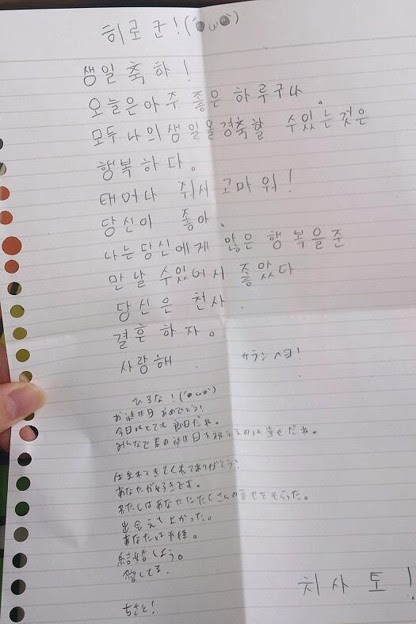 히로군!(´●ω●`)
생일축하!
오늘은아주 좋은 하루구나.
모두 나의생일을경축할 수있는것은
행복하다。
태어나 줘서 고마워!
당신이 좋아.
나는당신에게 많은행복을준
만날 수있어서 좋았다
당신은 천사.
결혼하자。
사랑해. サランヘヨ!
ひろな!(´●ω●`)
お誕生日おめでとう!
今日はとても良い日だね。
みんなで君の誕生日を祝えるのは幸せだね。
生まれてきてくれてありがとう!
あなたが好きです。
わたしはあなたにたくさんの幸せをもらった。
出会えて良かった。
あなたは天使。
結婚しよう。
愛してる.
ちさと!
치사토!